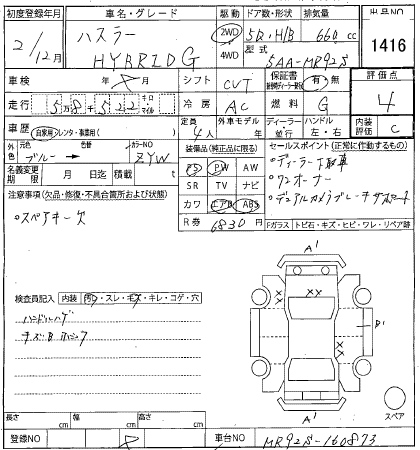 初度登録年月 車名・グレード 駆動 ドア数・形状 排気量 出品NO
2/12月 ハスラー HYBRID G 2WD 4WD 5D・H/B 660 cc 1416
型式 5AA-MR92S
車検 年 月 シフト CVT 保証書 有・無 評価点
走行 5万8千522 キロ マイル 冷房 AC 燃料 G 4
車歴 自家用 レンタ・事業用 定員 4人 外車モデル 年 ディーラー 並行 ハンドル 左・右 内装評価 C
外色 元色 ブルー → 色替 カラーNO ZYW 装備品(純正品に限る) セールスポイント(正常に作動するもの)
名義変更期限 月 日迄 積載 t PS PW AW ・ディーラー下取車
注意事項(欠品・修復・不具合箇所および状態) SR TV ナビ ・ワンオーナー
・スペアキー欠 カワ エアB ABS ・デュアルカメラブレーキサポート
R券 6830円 Fガラス トビ石・キズ・ヒビ・ワレ・リペア跡
A'
検査員記入 内装 汚れ・スレ・キズ・キレ・コゲ・穴
ハンドルハゲ
B'
スペア
A'
長さ cm 幅 cm 高さ cm
登録NO 車台NO MR92S-160873